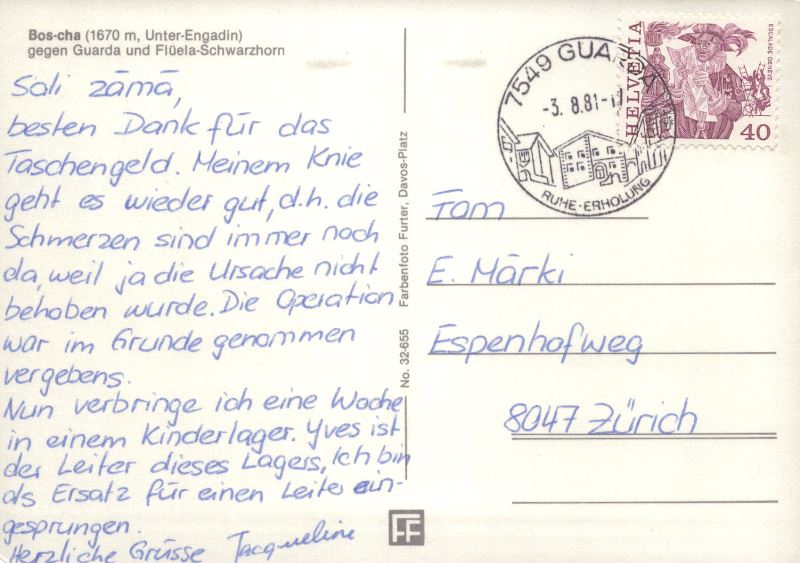 Bos-cha (1670 m, Unter-Engadin)
gegen Guarda und Flüela-Schwarzhorn
Sali zämä,
besten Dank für das
Taschengeld. Meinem Knie
geht es wieder gut, d.h. die
Schmerzen sind immer noch
da, weil ja die Ursache nicht
behoben wurde. Die Operation
war im Grunde genommen
vergebens.
Nun verbringe ich eine Woche
in einem Kinderlager. Yves ist
der Leiter dieses Lagers, Ich bin
als Ersatz für einen Leiter ein-
gesprungen.
Herzliche Grüsse Jacqueline
No. 32-655 Farbenfoto Furter, Davos-Platz
FF
7549 GUARDA
-3. 8.81-1
RUHE·ERHOLUNG
HELVETIA
ESCALADE GENEVE
40
Fam
E. Märki
Espenhofweg
8047 Zürich